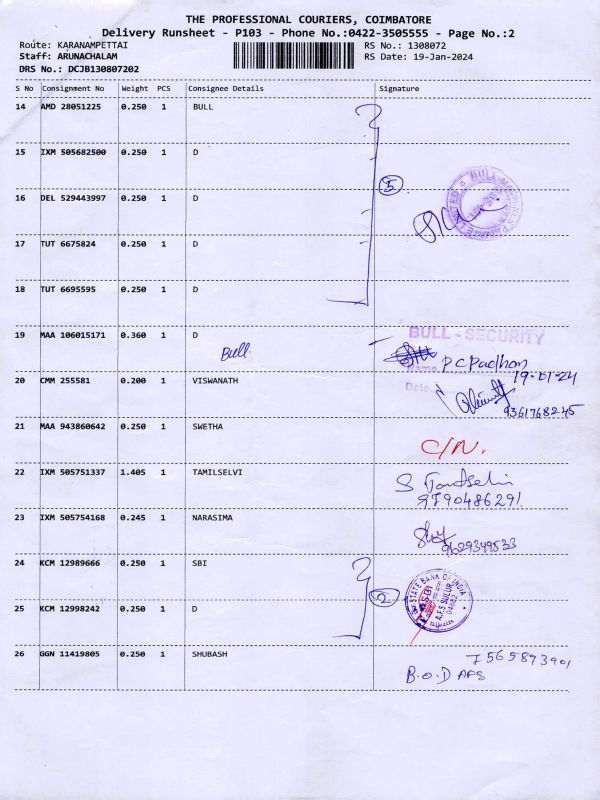 THE PROFESSIONAL COURIERS, COIMBATORE
Delivery Runsheet - P103 - Phone No.:0422-3505555 - Page No.:2
Route: KARANAMPETTAI RS No.: 1308072
Staff: ARUNACHALAM RS Date: 19-Jan-2024
DRS No.: DCJB130807202
S No Consignment No Weight PCS Consignee Details Signature
14 AMD 28051225 0.250 1 BULL
15 IXM 505682500 0.250 1 D
5
16 DEL 529443997 0.250 1 D
17 TUT 6675824 0.250 1 D
18 TUT 6695595 0.250 1 D
BULL - SECURITY
19 MAA 106015171 0.360 1 D
Bull
Name
P C Padhan
19-01-24
Date
20 CMM 255581 0.200 1 VISWANATH
9361768245
21 MAA 943860642 0.250 1 SWETHA
C/N.
22 IXM 505751337 1.405 1 TAMILSELVI
S Tamilselvi
9790486291
23 IXM 505754168 0.245 1 NARASIMA
9629349533
24 KCM 12989666 0.250 1 SBI
STATE BANK OF INDIA
SBI
A.F.S SULUR
2
25 KCM 12998242 0.250 1 D
26 GGN 11419805 0.250 1 SHUBASH
7565893901
B.O.D AFS